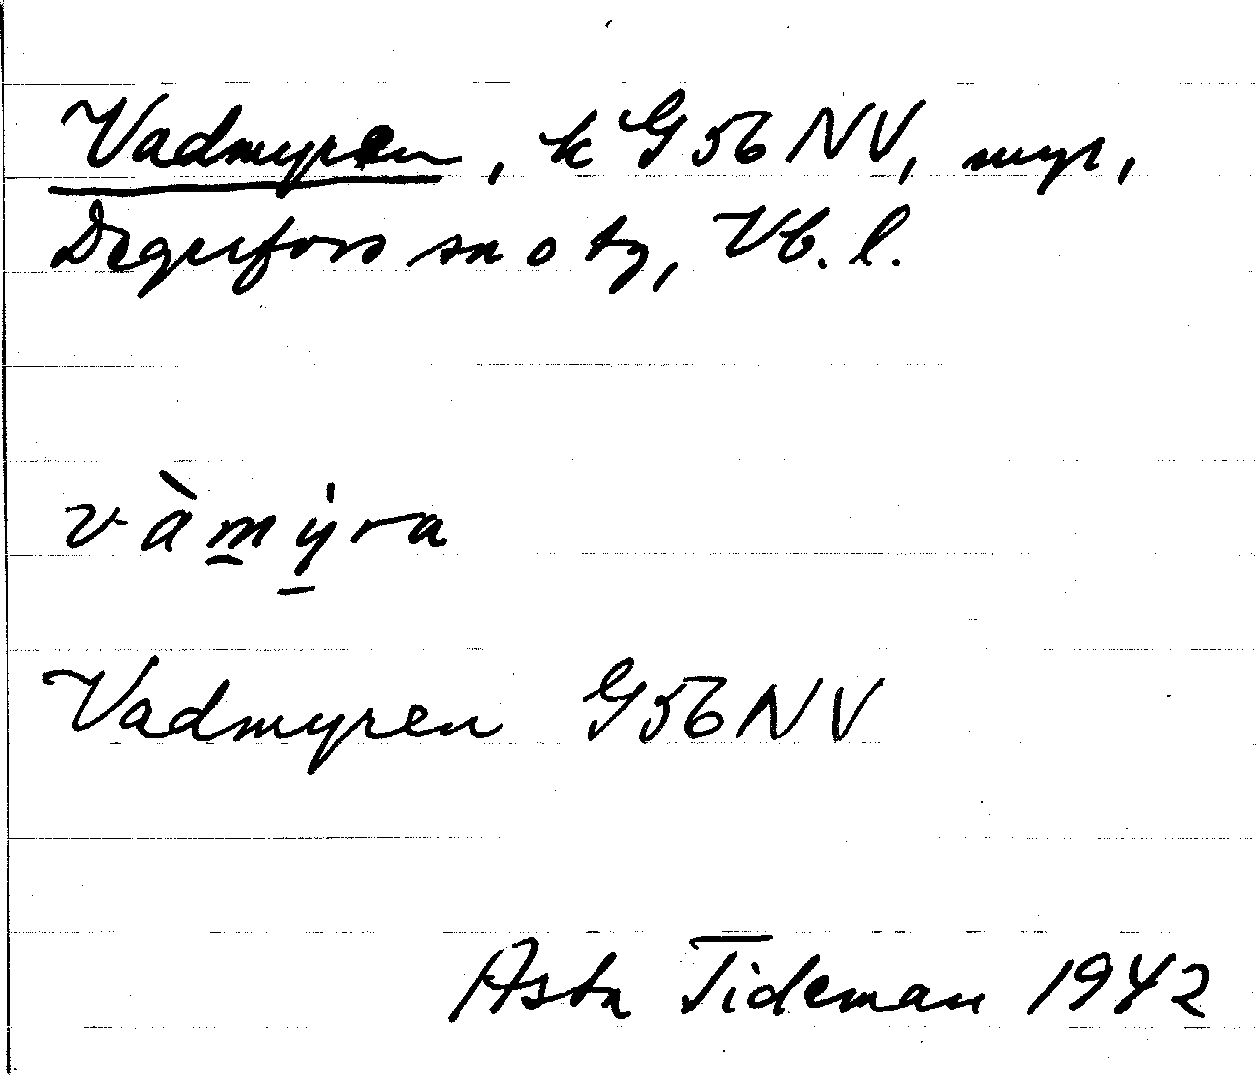 Vadmyren, k G56NV, myr,
Degerfors sn o tg, Vb. l.
vàmy̍ra
Vadmyren G56NV
Asta Tideman 1942